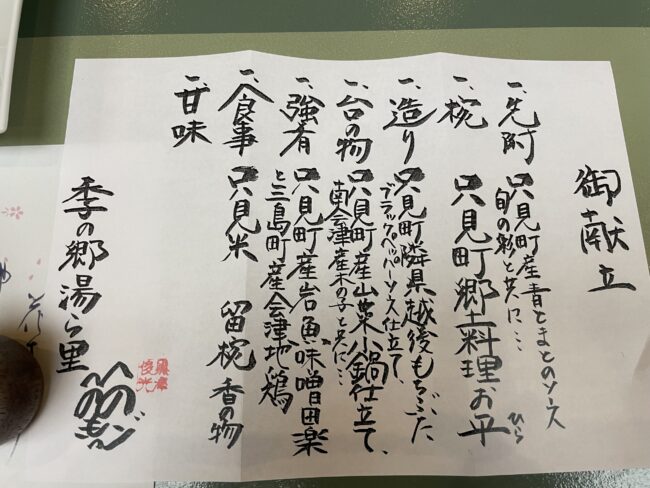 御献立
一、先附 只見町産青とまとのソース
旬の彩と共に…
一、椀 只見町郷土料理お平
ひら
一、造り 只見町隣県越後もちぶた
ブラックペッパーソース仕立て、
一、台の物 只見町産山菜小鍋仕立て、
南会津産木の子と共に…
一、強肴 只見町産岩魚味噌田楽
と三島町産会津地鶏
一、食事 只見米 留椀 香の物
一、甘味
季の郷湯ら里